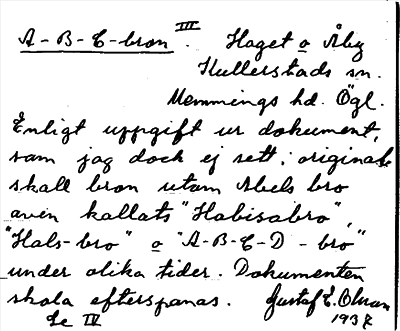 A-B-C-bron III. Haget o Åby
Kullerstads sn.
Memmings hd. Ögl.
Enligt uppgift ur dokument,
som jag dock ej sett i original
skall bron utom Abels bro
även kallats "Habisabro",
"Hals-bro" o "A-B-C-D-bro"
under olika tider. Dokumenten
skola efterspanas. Gustaf E. Olsson
Se IV 193